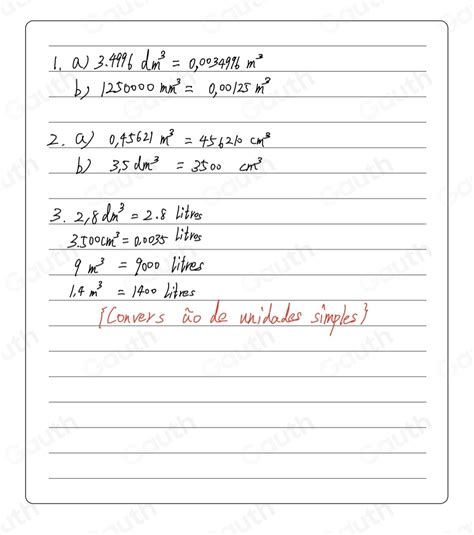 1. a) 3.4996 dm³ = 0,0034996 m³
b) 1250000 mm³ = 0,00125 m³
2. a) 0,45621 m³ = 456210 cm³
b) 3,5 dm³ = 3500 cm³
3. 2,8 dm³ = 2.8 litres
3.500cm³ = 0.0035 litres
9 m³ = 9000 litres
1,4 m³ = 1400 litres
{Convers ão de unidades simples}